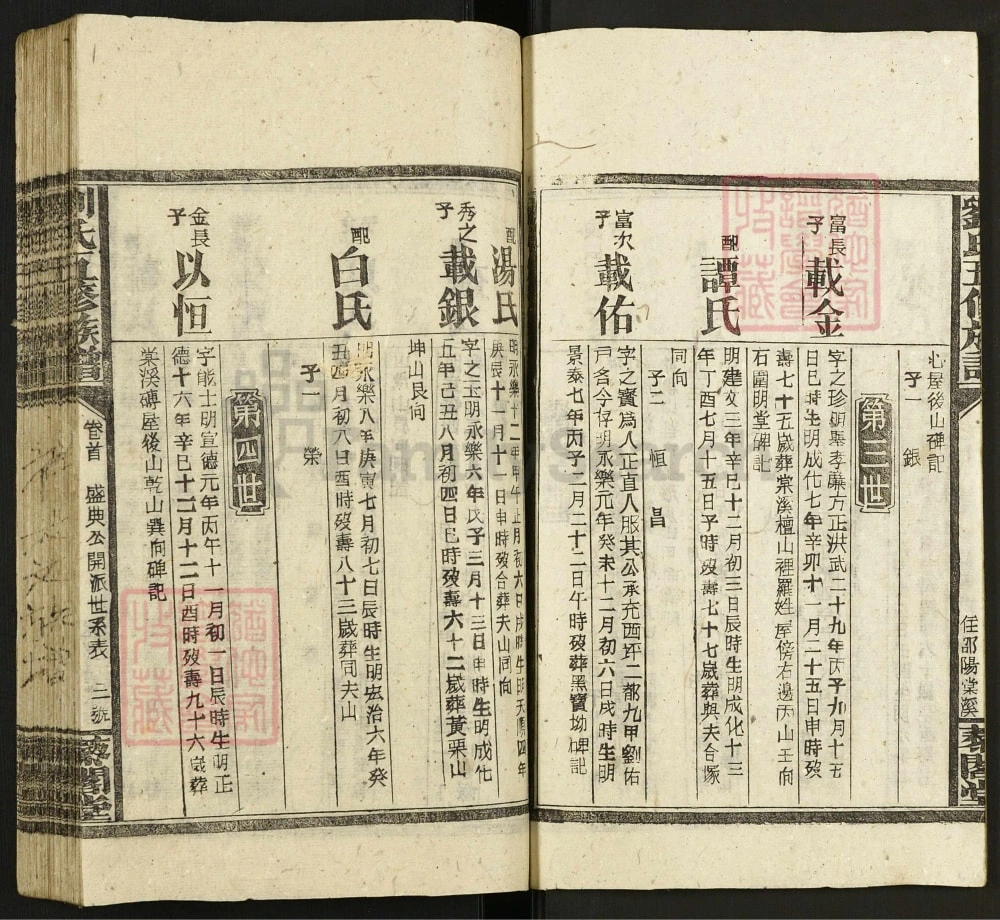 劉氏五修族譜
住邵陽棠溪
藜閣堂
心屋後山碑記
子一 銀
第三世
富長子
載金
字之珍明舉孝廉方正洪武二十九年丙子九月十五
日巳時生明成化七年辛卯十一月二十五日申時歿
壽七十五歲葬棠溪檀山裡羅姓屋傍右邊丙山壬向
石圍明堂碑記
配
譚氏
明建文三年辛巳十二月初三日辰時生明成化十三
年丁酉七月十五日子時歿壽七十七歲葬與夫合塚
同向
子二 恒 昌
富次子
載佑
字之寶為人正直人服其公承充西坪二都九甲劉佑
戶名今存明永樂元年癸未十二月初六日戌時生明
景泰七年丙子二月二十二日午時歿葬黑寶坳碑記
配
湯氏
明永樂十二年甲午正月初六日戌時生明天順四年
庚辰十一月十一日申時歿合葬夫山同向
秀之子
載銀
字之玉明永樂六年戊子三月十三日申時生明成化
五年己丑八月初四日巳時歿壽六十二歲葬黃栗山
坤山艮向
配
白氏
明永樂八年庚寅七月初七日辰時生明宏治六年癸
丑四月初八日酉時歿壽八十三歲葬同夫山
子一 榮
第四世
金長子
以恒
字能士明宣德元年丙午十一月初一日辰時生明正
德十六年辛巳十二月十二日酉時歿壽九十六歲葬
棠溪磚屋後山乾山巽向碑記
劉氏五修族譜
卷首
盛典公開派世系表
二號
藜閣堂